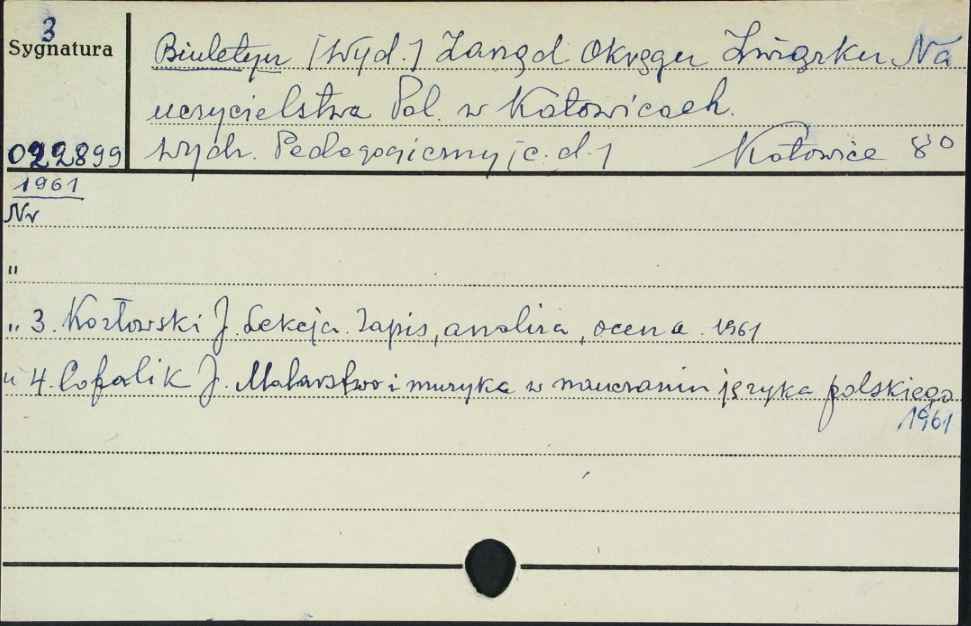 3
Sygnatura
Biuletyn [Wyd.] Zarząd Okręgu Związku Na
uczycielstwa Pol. w Katowicach.
022899 Wydz. Pedagogiczny [c.d.] Katowice 8°
1961
Nr
"
" 3. Kozłowski J. Lekcja. Zapis, analiza, ocena. 1961
" 4. Cofalik J. Malarstwo i muzyka w nauczaniu języka polskiego
1961